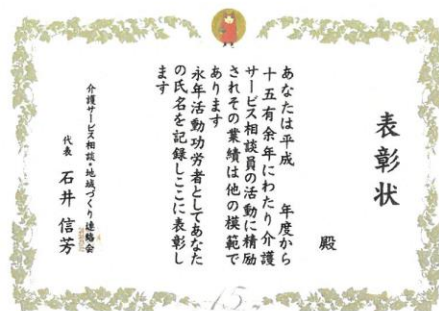 表彰状
殿
あなたは平成　　年度から
十五有余年にわたり介護
サービス相談員の活動に精励
されその業績は他の模範で
あります
永年活動功労者としてあなた
の氏名を記録しここに表彰し
ます
介護サービス相談・地域づくり連絡会
代表　石井　信芳
15